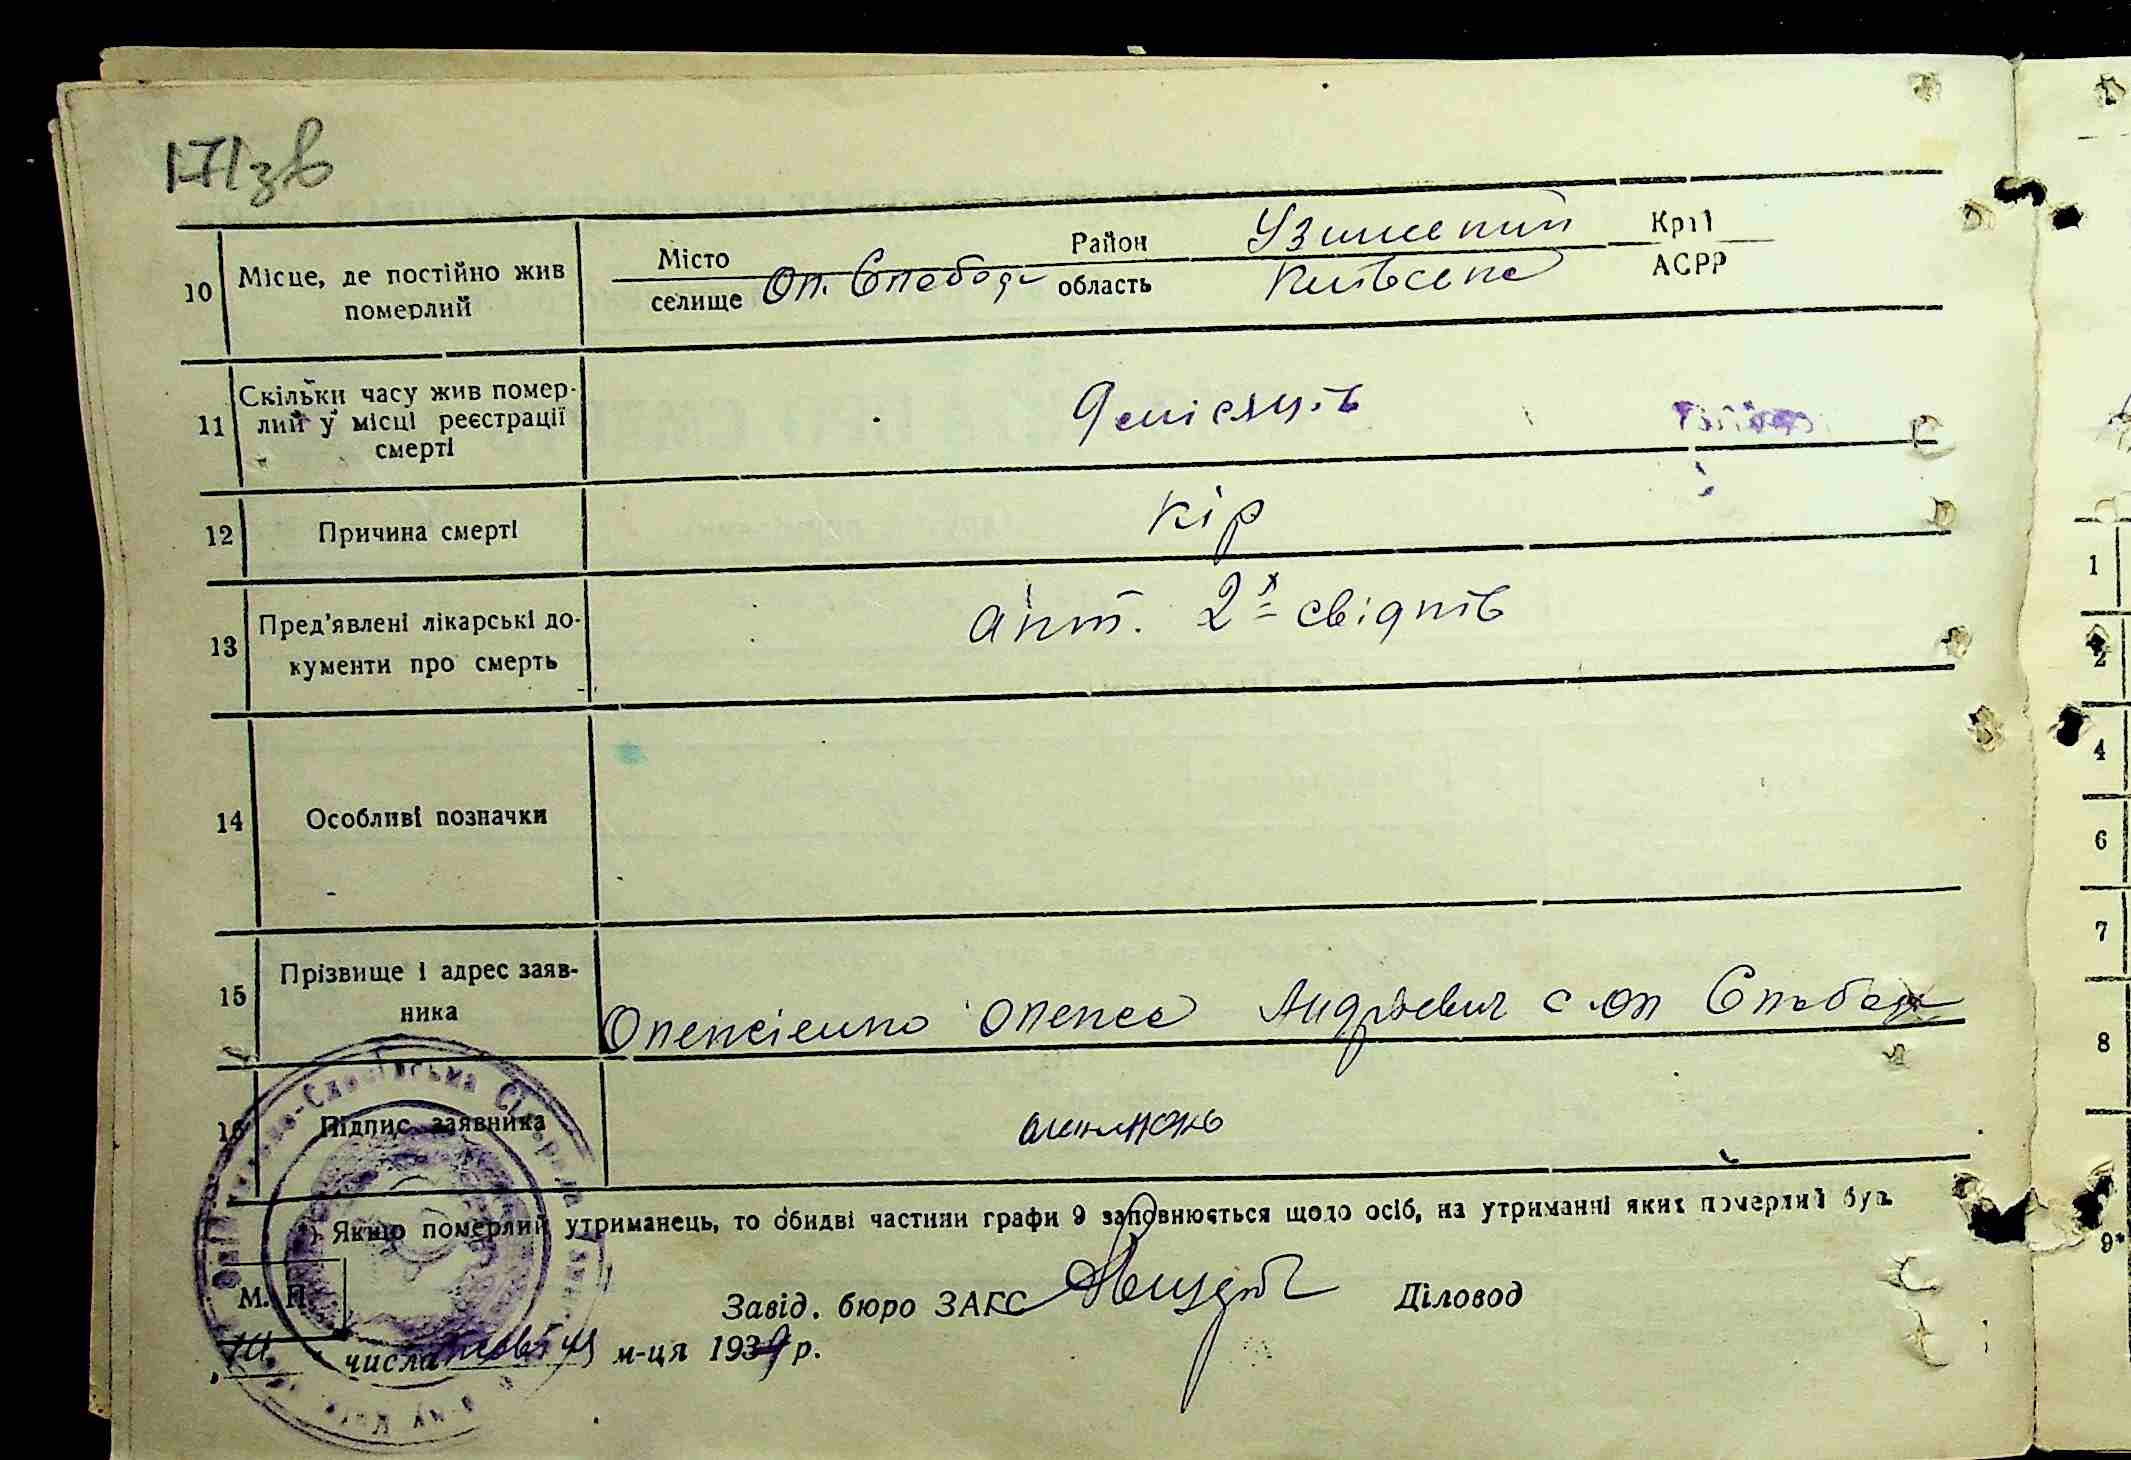 171зв
10 Місце, де постійно жив померлий
Місто
селище Ол. Слобода
Район Узинський
область Київська
Край
АСРР
11 Скільки часу жив помер-
лий у місці реєстрації
смерті
9 місяців
12 Причина смерті
кір
13 Пред'явлені лікарські до-
кументи про смерть
акт. 2х свідків
14 Особливі позначки
15 Прізвище і адрес заяв-
ника
Олексієнко Олекса Андрієвич с Ол Слобода
16 Підпис заявника
*) Якщо померлий утриманець, то обидві частини графи 9 заповнюється щодо осіб, на утриманні яких померлий був.
М. П.
Завід. бюро ЗАГС
Діловод
числа м-ця 1939 р.
1
2
4
6
7
8
9*